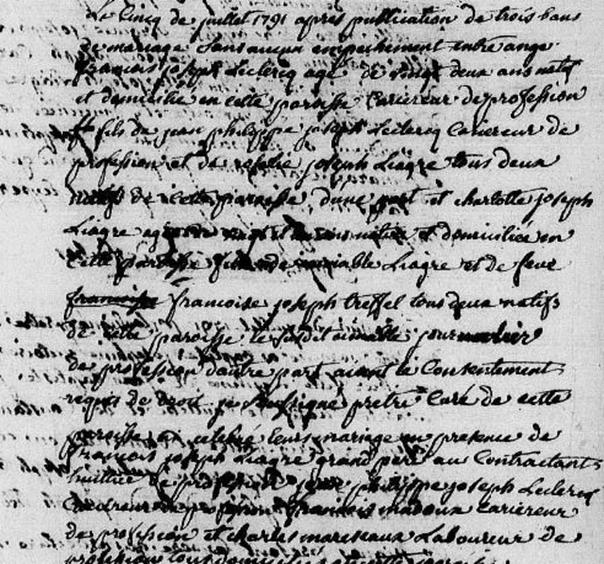 Le Cinq de juillet 1791 apres publication de trois bans
de mariage sans aucun empechement entre ange
francois joseph Leclercq agé de vingt deux ans natif
et domicilié en cette paroisse Cariereur de profession
fils de jean philippe joseph Leclercq Cariereur de
profession et de joseph Liagre tous deux
natifs de cette paroisse dune part et charlotte joseph
Liagre agée de vingt et ans native et domiciliée en
cette paroisse fille de aimable Liagre et de feue
francoise joseph treffel tous deux natifs
de cette paroisse le susdit aimable
de profession dautre part aiant le Consentement
requis de droit je soussigné pretre Curé de cette
paroisse ai celebré leurs mariage en presence de
francois joseph Liagre grand pere au Contractant
de profession jean philippe joseph Leclercq
Cariereur de profession francois madoux cariereur
de profession et charles Laboureur de
profession tous domiciliés